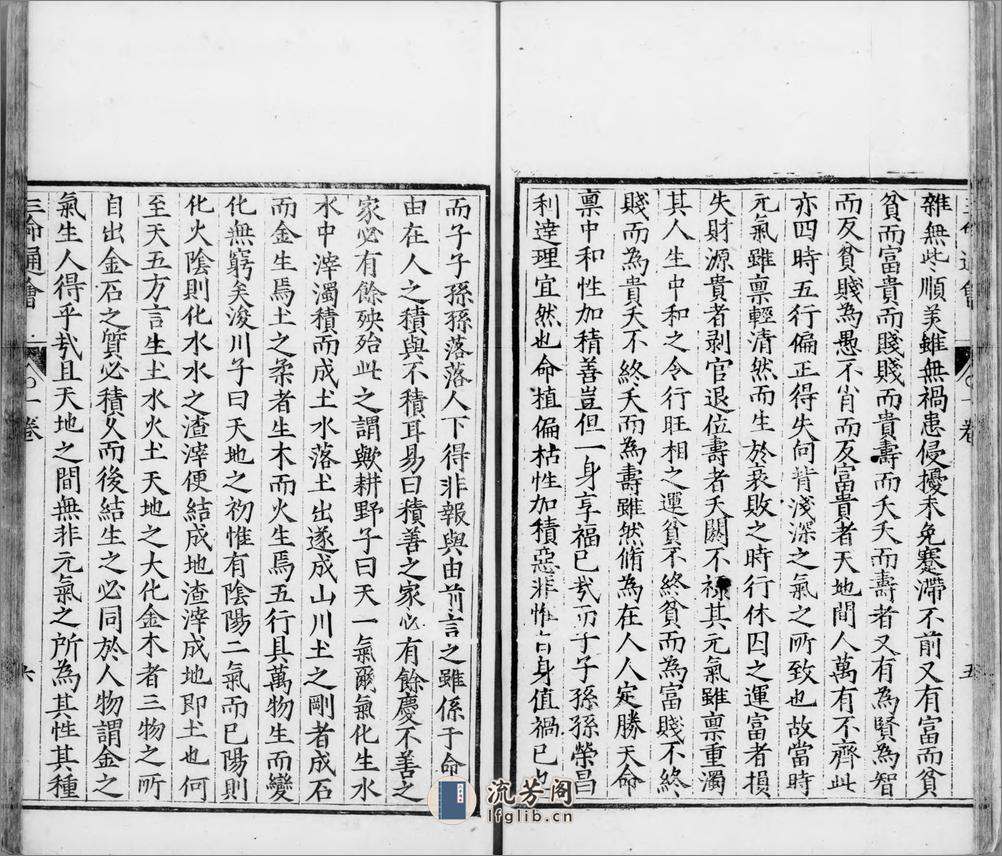 雜無些順美雖無禍患侵擾未免蹇滯不前又有富而貧
貧而富貴而賤賤而貴壽而夭夭而壽者又有為賢為智
而反貧賤為愚不肖而反富貴者天地間人萬有不齊此
亦四時五行偏正得失向背淺深之氣之所致也故當時
元氣雖禀輕清然而生於衰敗之時行休囚之運富者損
失財源貴者剥官退位壽者夭闕不祿其元氣雖禀重濁
其人生中和之令行旺相之運貧不終貧而為富賤不終
賤而為貴夭不終夭而為壽雖然脩為在人人定勝天命
禀中和性加積善豈但一身享福已哉而子子孫孫榮昌
利達理宜然也命植偏枯性加積惡非惟自身值禍已也
五
而子子孫孫落落人下得非報與由前言之雖係于命
由在人之積與不積耳易曰積善之家必有餘慶不善之
家必有餘殃殆此之謂歟耕野子曰天一氣爾氣化生水
水中滓濁積而成土水落土出遂成山川土之剛者成石
而金生焉土之柔者生木而火生焉五行具萬物生而變
化無窮矣浚川子曰天地之初惟有陰陽二氣而已陽則
化火陰則化水水之渣滓便結成地渣滓成地即土也何
至天五方言生土水火土天地之大化金木者三物之所
自出金石之質必積久而後結生之必同於人物謂金之
氣生人得乎哉且天地之間無非元氣之所為其性其種
三命通會 一卷 六
流芳阁
lfglib.cn